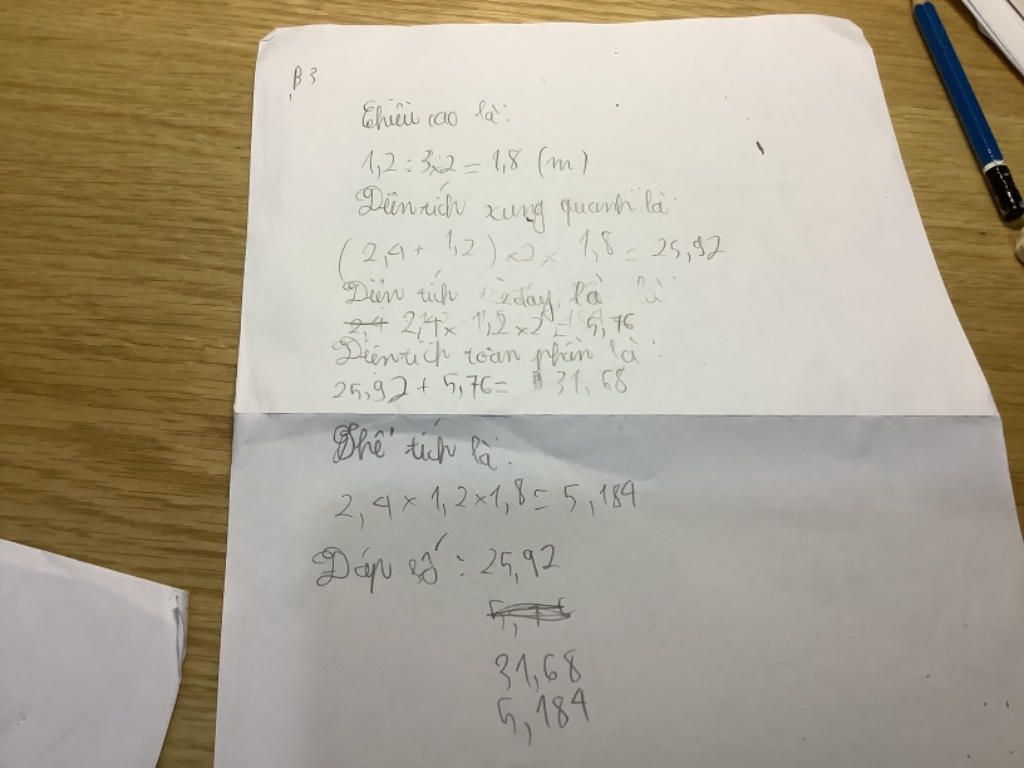 B3
Chiều cao là:
1,2 : 3 x 2 = 1,8 (m)
Diện tích xung quanh là:
(2,4 + 1,2) x 2 x 1,8 = 25,92
Diện tích đáy là là
2,4 2,4 x 1,2 x 2 = 5,76
Diện tích toàn phần là:
25,92 + 5,76 = 31,68
Thể tích là:
2,4 x 1,2 x 1,8 = 5,184
Đáp số: 25,92
31,68
5,184